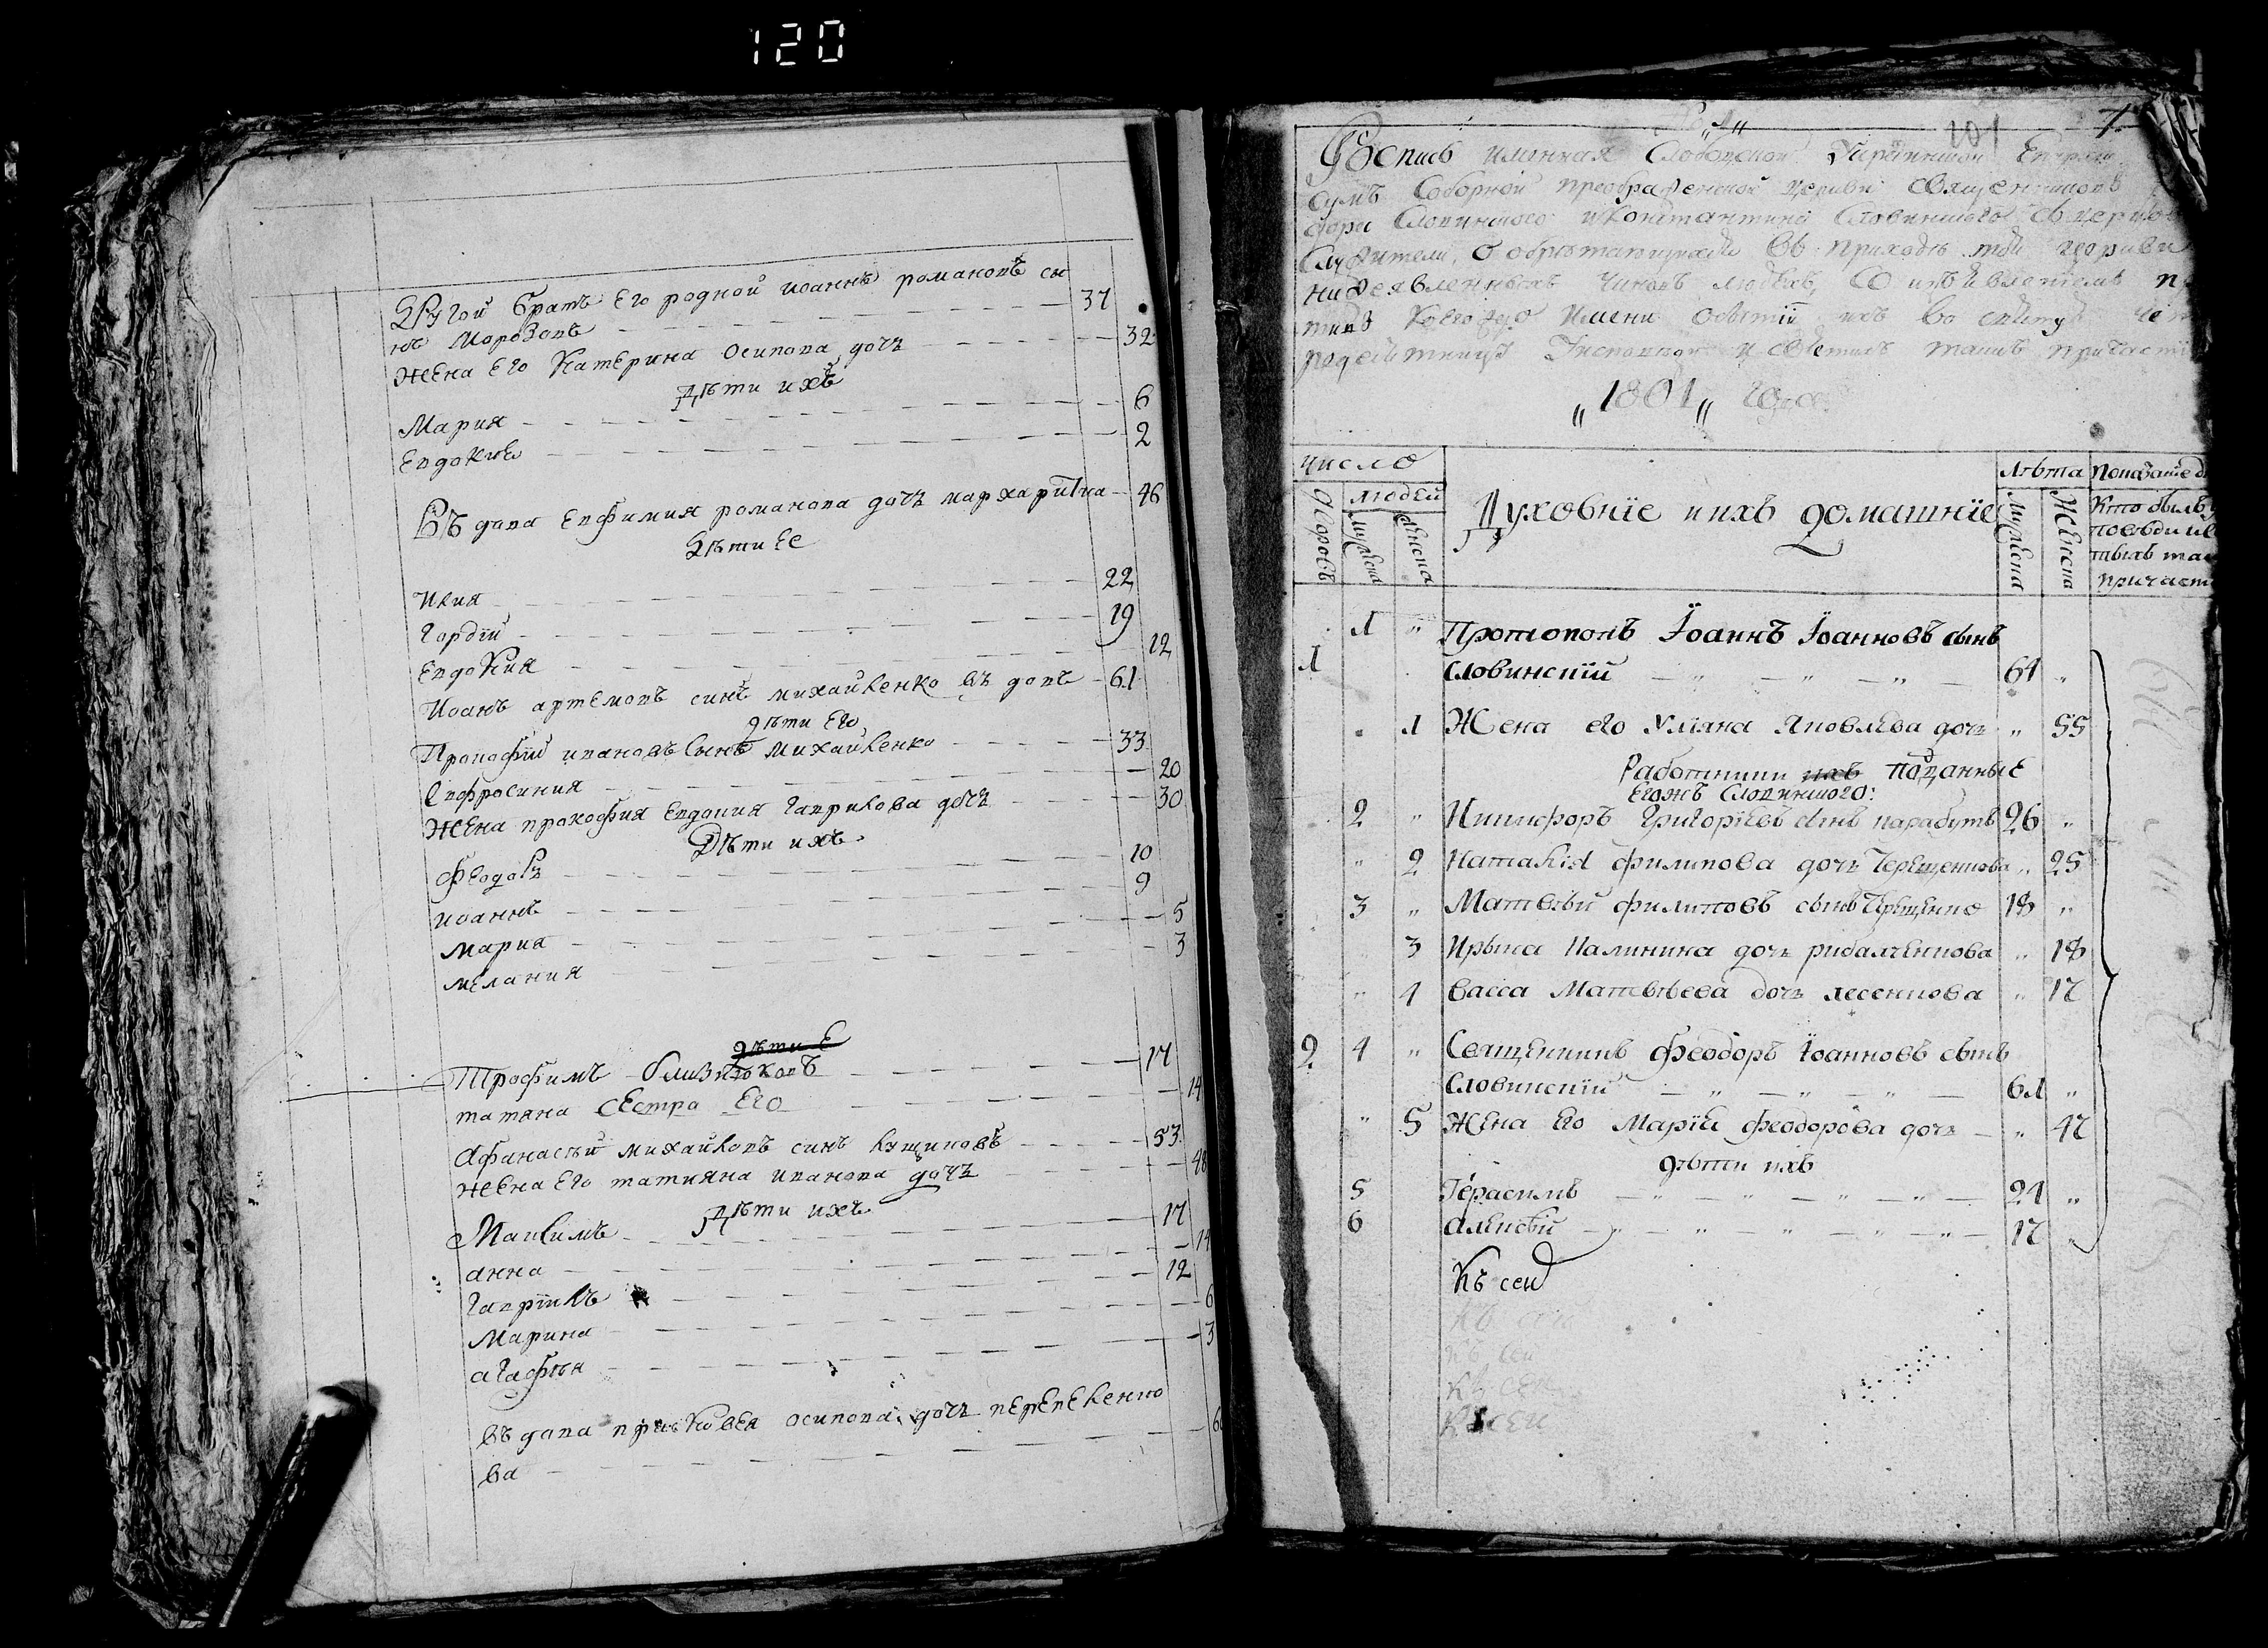 120
Другой братъ Его родной иоаннъ романовъ сы
нъ Морозовъ 37
жена Его Катерина осипова дочъ 32
Дѣти ихъ
Мария 6
Евдокия 2
Въдова Евфимия романова дочъ 46
Дѣти Ее
Илия 22
Гордїй 19
Евдокия 12
Иоанъ артемовъ синъ михайленко въдовъ 61
дѣти Его
Прокофїй ивановъ сынъ михайленко 33
Евфросиния 20
жена прокофия Евдокия гаврилова дочъ 30
Дѣти ихъ
Феодоръ 10
иоаннъ 9
мария 5
мелания 3
дѣти Е
Трофимъ близнюковъ 17
татяна сестра Его 14
Афанасѣй михайловъ синъ кущиновъ 53
жена Его татияна иванова дочъ 48
Дѣти ихъ
Максимъ 17
анна 14
гаврїилъ 12
Марина 6
агафѣя 3
въдова прасковея осипова дочъ перепеленко
ва
7
201
Роспись именная Слободской Украинской Епархии
Сумъ Соборной преображенской церкви священниковъ
дора Словинского и Константина Словинского съ церковно
служители, о обрѣтающихся въ приходѣ той церкви
нижеявленныхъ чиновъ людехъ, со изъявлениемъ
тивъ коегождо имени о бытїи ихъ во святую
редесятницу Уисповѣди и святыхъ таинъ
„1801„ года
число лѣта Показание
людей
Дворовъ мужеска женска Духовнїе и ихъ домашнїе мужеска женска Кто былъ у
исповѣди и с
тыхъ та
причаст
1 „ Протопопъ Їоаннъ Їоанновъ сынъ
1 Словинскїй 61 „
1 Жена его Улїяна Яковлева дочь „ 55
Работники ихъ подданные
Егожъ Словинского:
2 „ Никифоръ Григорїевъ сынъ 26 „
„ 2 Наталїя филипова дочь Терещенкова „ 25
3 „ Матвѣй филиповъ сынъ Терещенко 18 „
3 Ирына Калинина дочь рибалченкова „ 18
„ 4 Васса Матвѣева дочь лесенкова „ 17
2 4 „ Священникъ феодоръ Їоанновъ сынъ
Словинскїй 61 „
„ 5 Жена Его Марїя феодорова дочь „ 47
дѣти ихъ
5 Герасимъ 21 „
6 Алексѣй 17 „
Къ сей
Къ сей
Къ сей
Къ сей